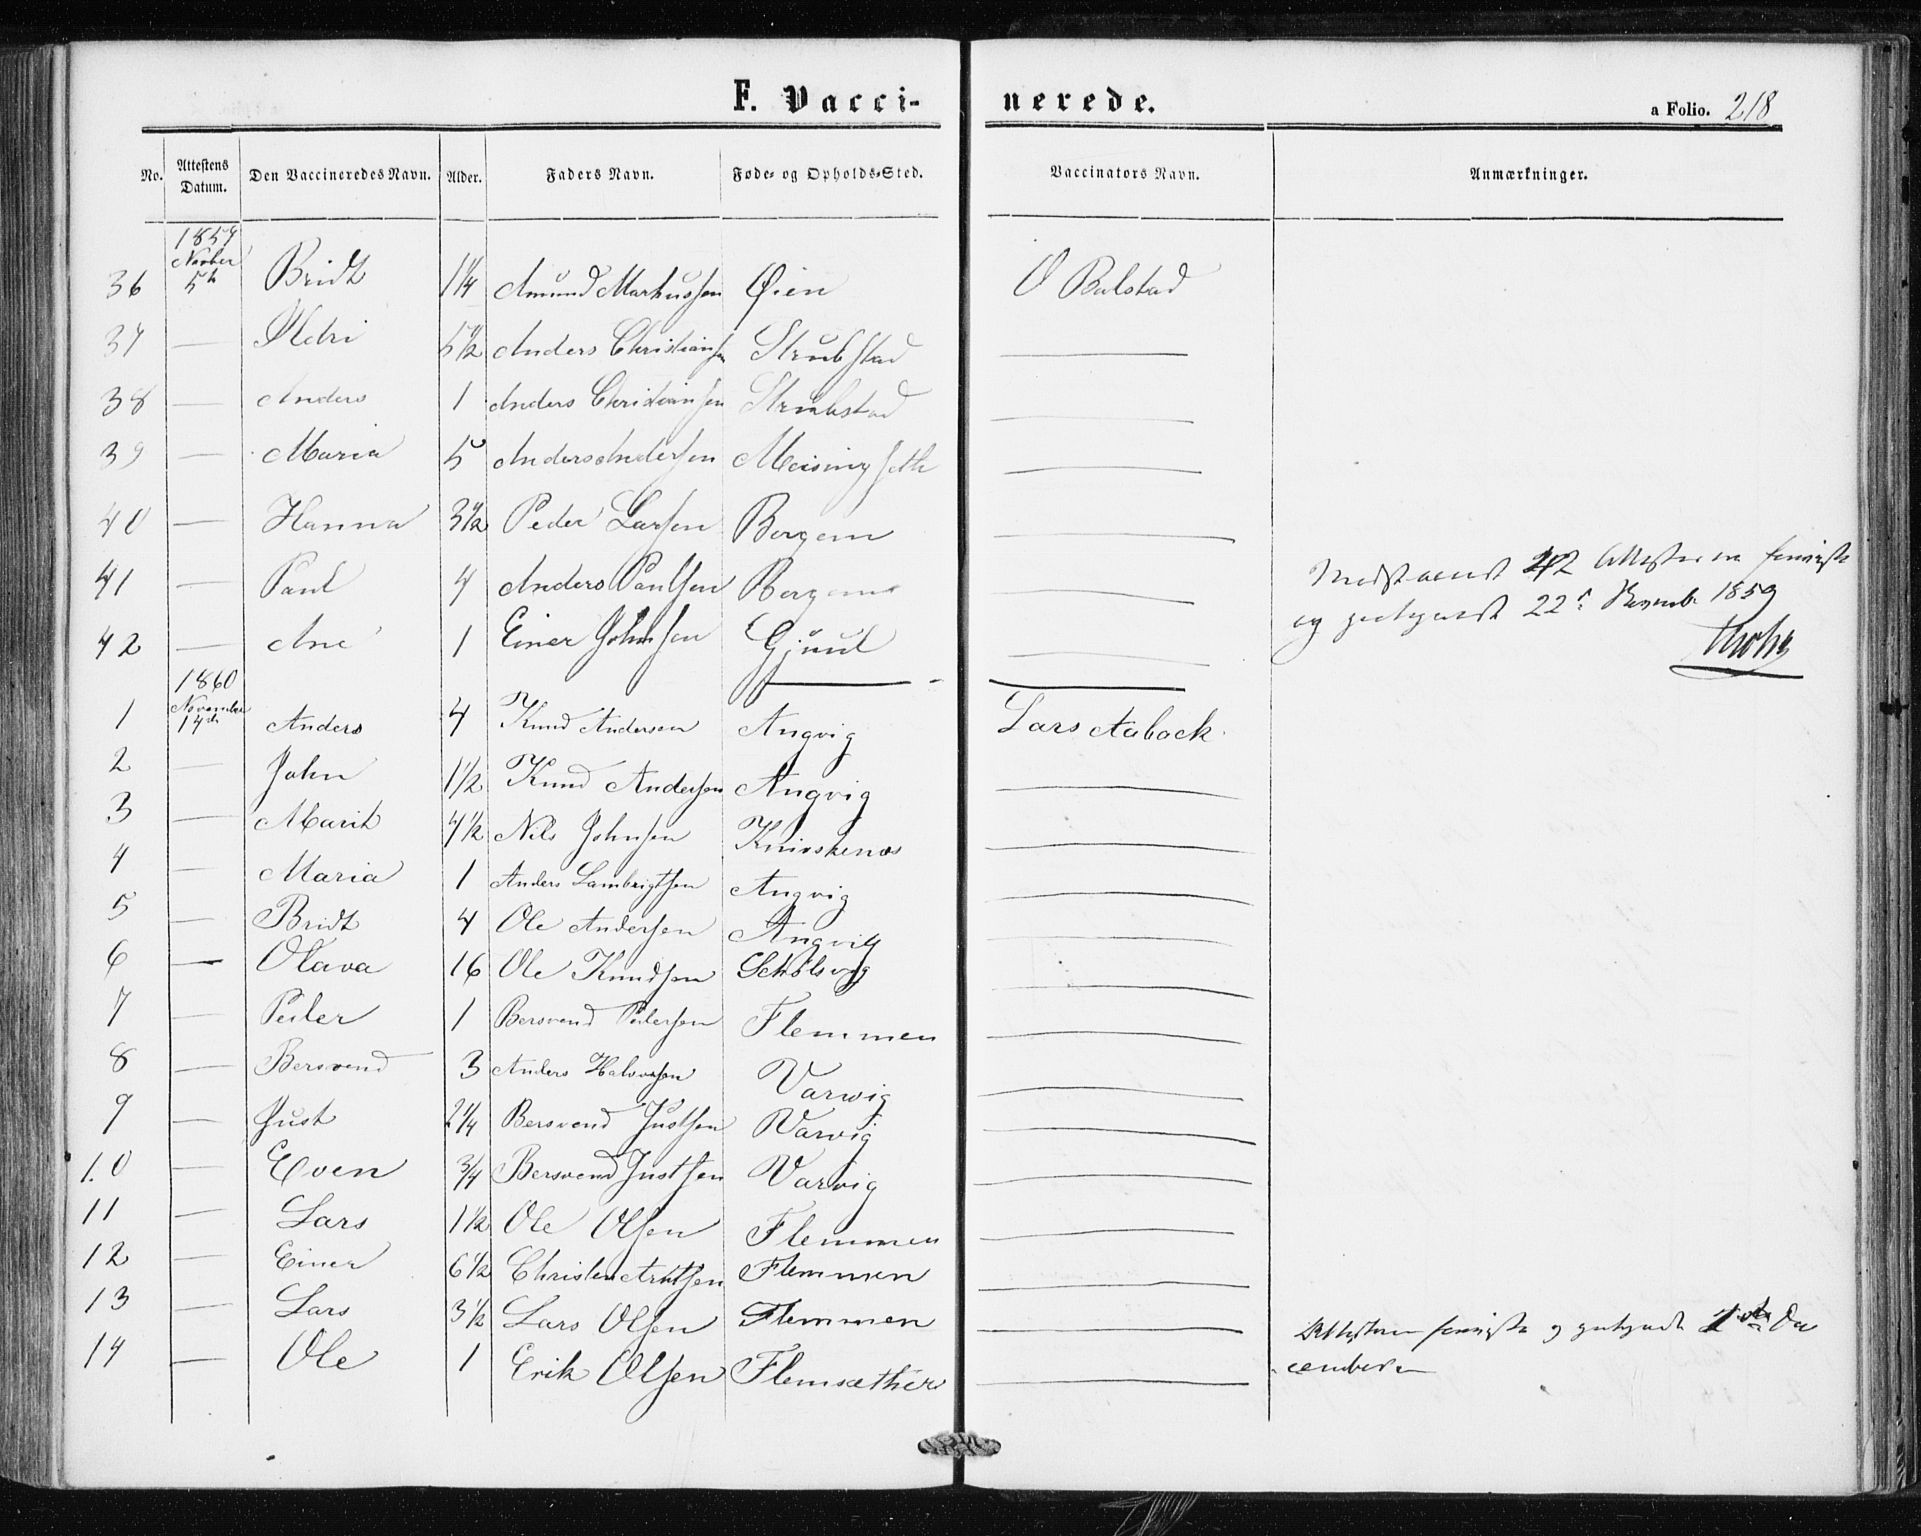 F. Vaccinerede.
a Folio. 218
No. | Attestens Datum. | Den Vaccineredes Navn. | Alder. | Faders Navn. | Føde- og Opholds-Sted. | Vaccinators Navn. | Anmærkninger.
1859
36 | Novber 5te | Bridt | 1 1/4 | Amund Markussen | Øien | O Bolstad
37 | — | 5 1/2 | Anders Christiansen | —
38 | — | Anders | 1 | Anders Christiansen | —
39 | — | Maria | 5 | Anders Andersen | Meisingseth | —
40 | — | Hanna | 3 1/2 | Peder Larsen | Bergem | —
41 | — | Paul | 4 | Anders Paulsen | Bergem | —
42 | — | Ane | 1 | Einer Johnsen | Gjuul | —
42 Attester
og 22 1859
1860
1 | November 14de | Anders | 4 | Knud Andersen | Angvig | Lars Aaback
2 | — | John | 1 1/2 | Knud Andersen | Angvig | —
3 | — | Marit | 4 1/2 | Nils Johnsen | —
4 | — | Maria | 1 | Anders Lambrigtsen | Angvig | —
5 | — | Bridt | 4 | Ole Andersen | Angvig | —
6 | — | Olava | 16 | Ole Knudsen | Schølsvig | —
7 | — | Peder | 1 | Bersvend Pedersen | Flemmen | —
8 | — | Bersvend | 3 | Anders Halvorsen | Varvig | —
9 | — | Just | 2 1/4 | Bersvend Justsen | Varvig | —
10 | — | Even | 3/4 | Bersvend Justsen | Varvig | —
11 | — | Lars | 1 1/2 | Ole Olsen | Flemmen | —
12 | — | Einer | 6 1/2 | Christen | Flemmen | —
13 | — | Lars | 3 1/2 | Lars Olsen | Flemmen | —
14 | — | Ole | 1 | Erik Olsen | Flemsæther | —
Attesterne